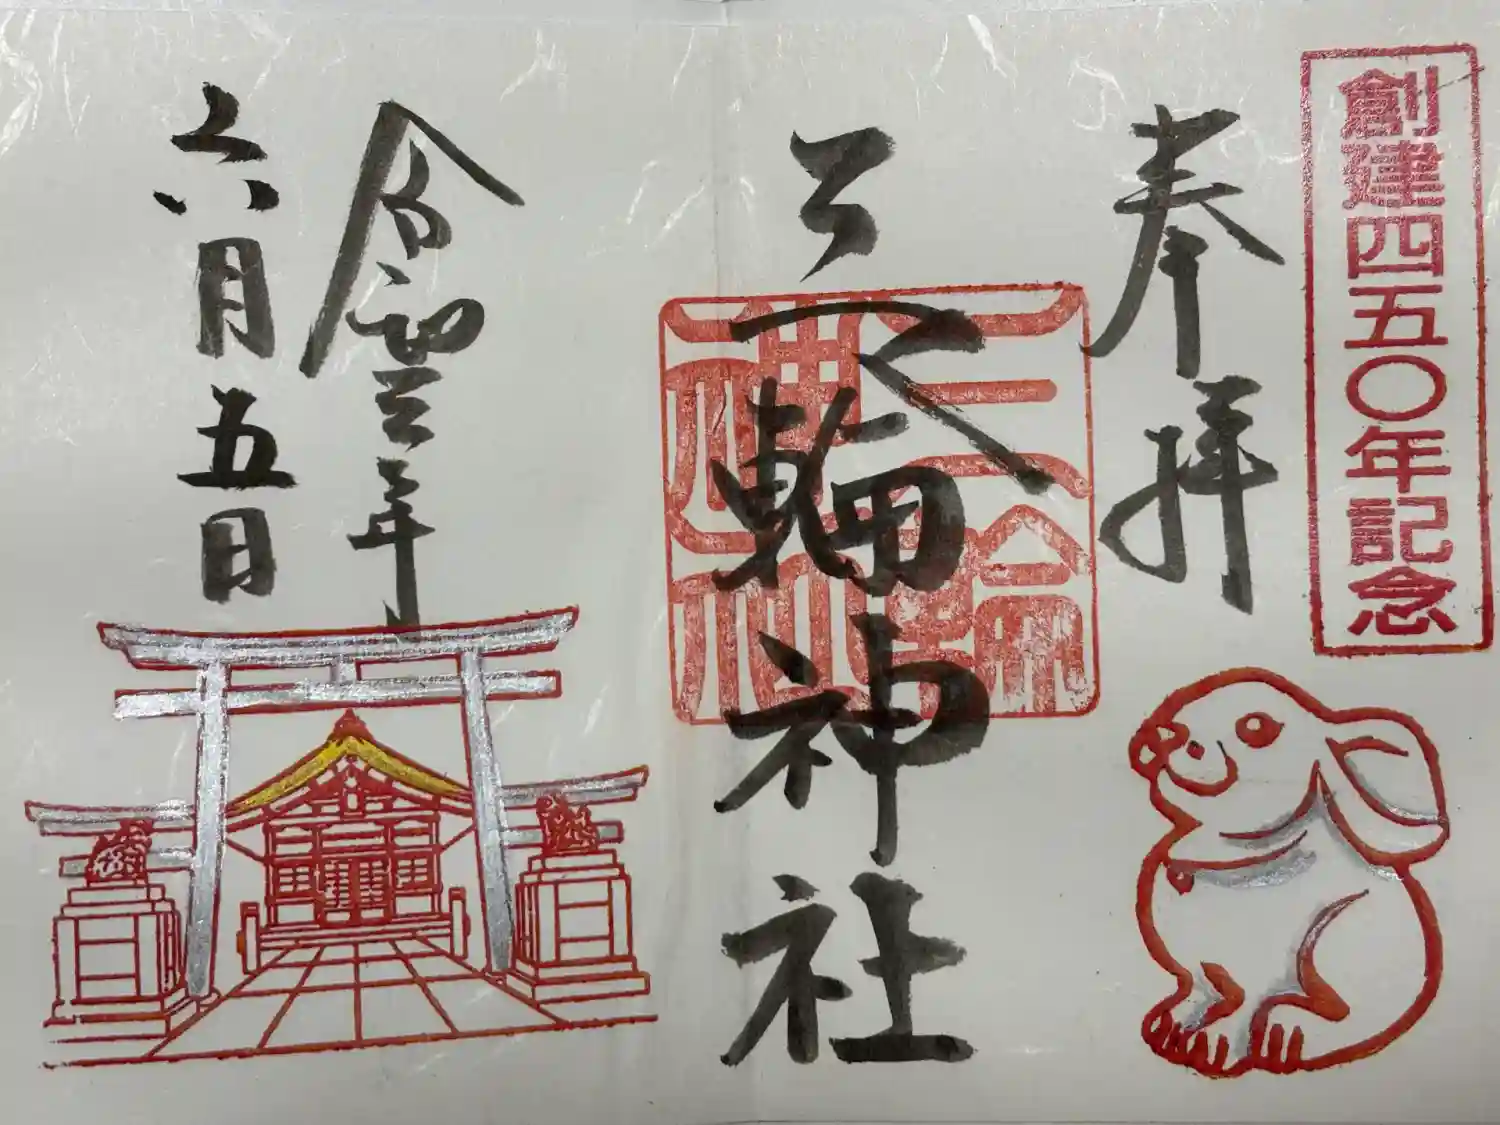 創建四五〇年記念
奉拝
三輪神社
三輪
神社
令和三年
六月五日